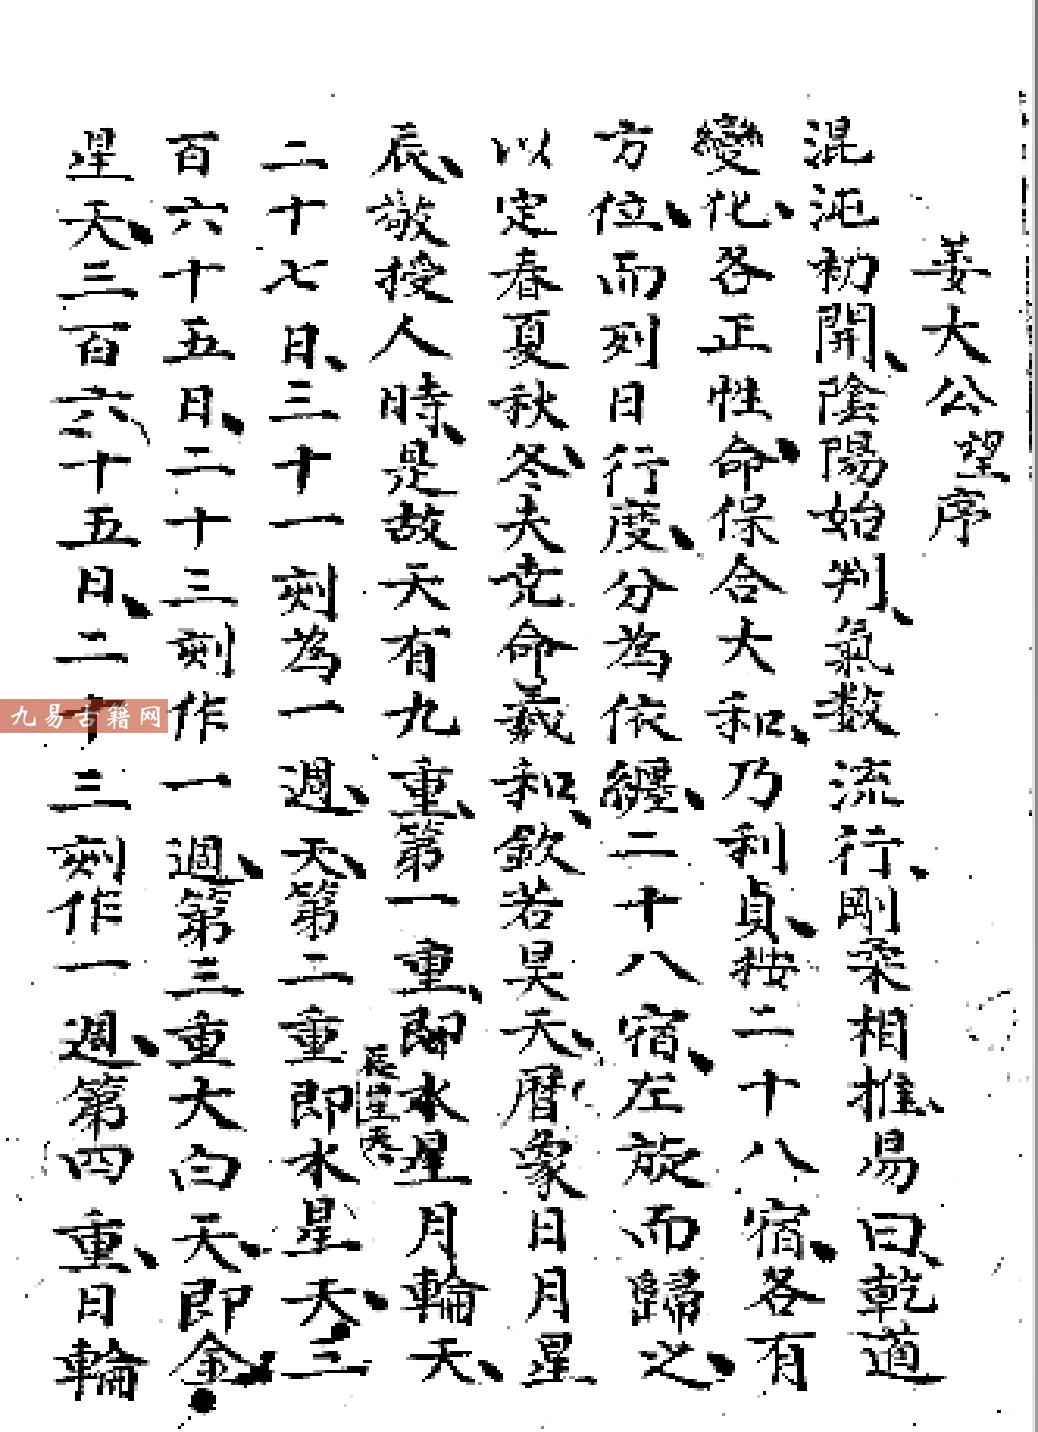 姜大公望序
混沌初開、陰陽始判、氣数流行、剛柔相推、易曰、乾道
變化、各正性命、保合大和、乃利貞、按二十八宿、各有
方位、而列日行度、分為依纏、二十八宿、左旋而歸之、
以定春夏秋冬、夫尭命羲和、欽若昊天、暦象日月星
辰、敬授人時、是故天有九重、第一重、即水星月輪天、
辰星天
二十七日、三十一刻為一週、天、第二重即水星天、三
百六十五日、二十三刻作一週、第三重大白天、即金
星天、三百六十五日、二十三刻作一週、第四重、日輪
九易古籍网